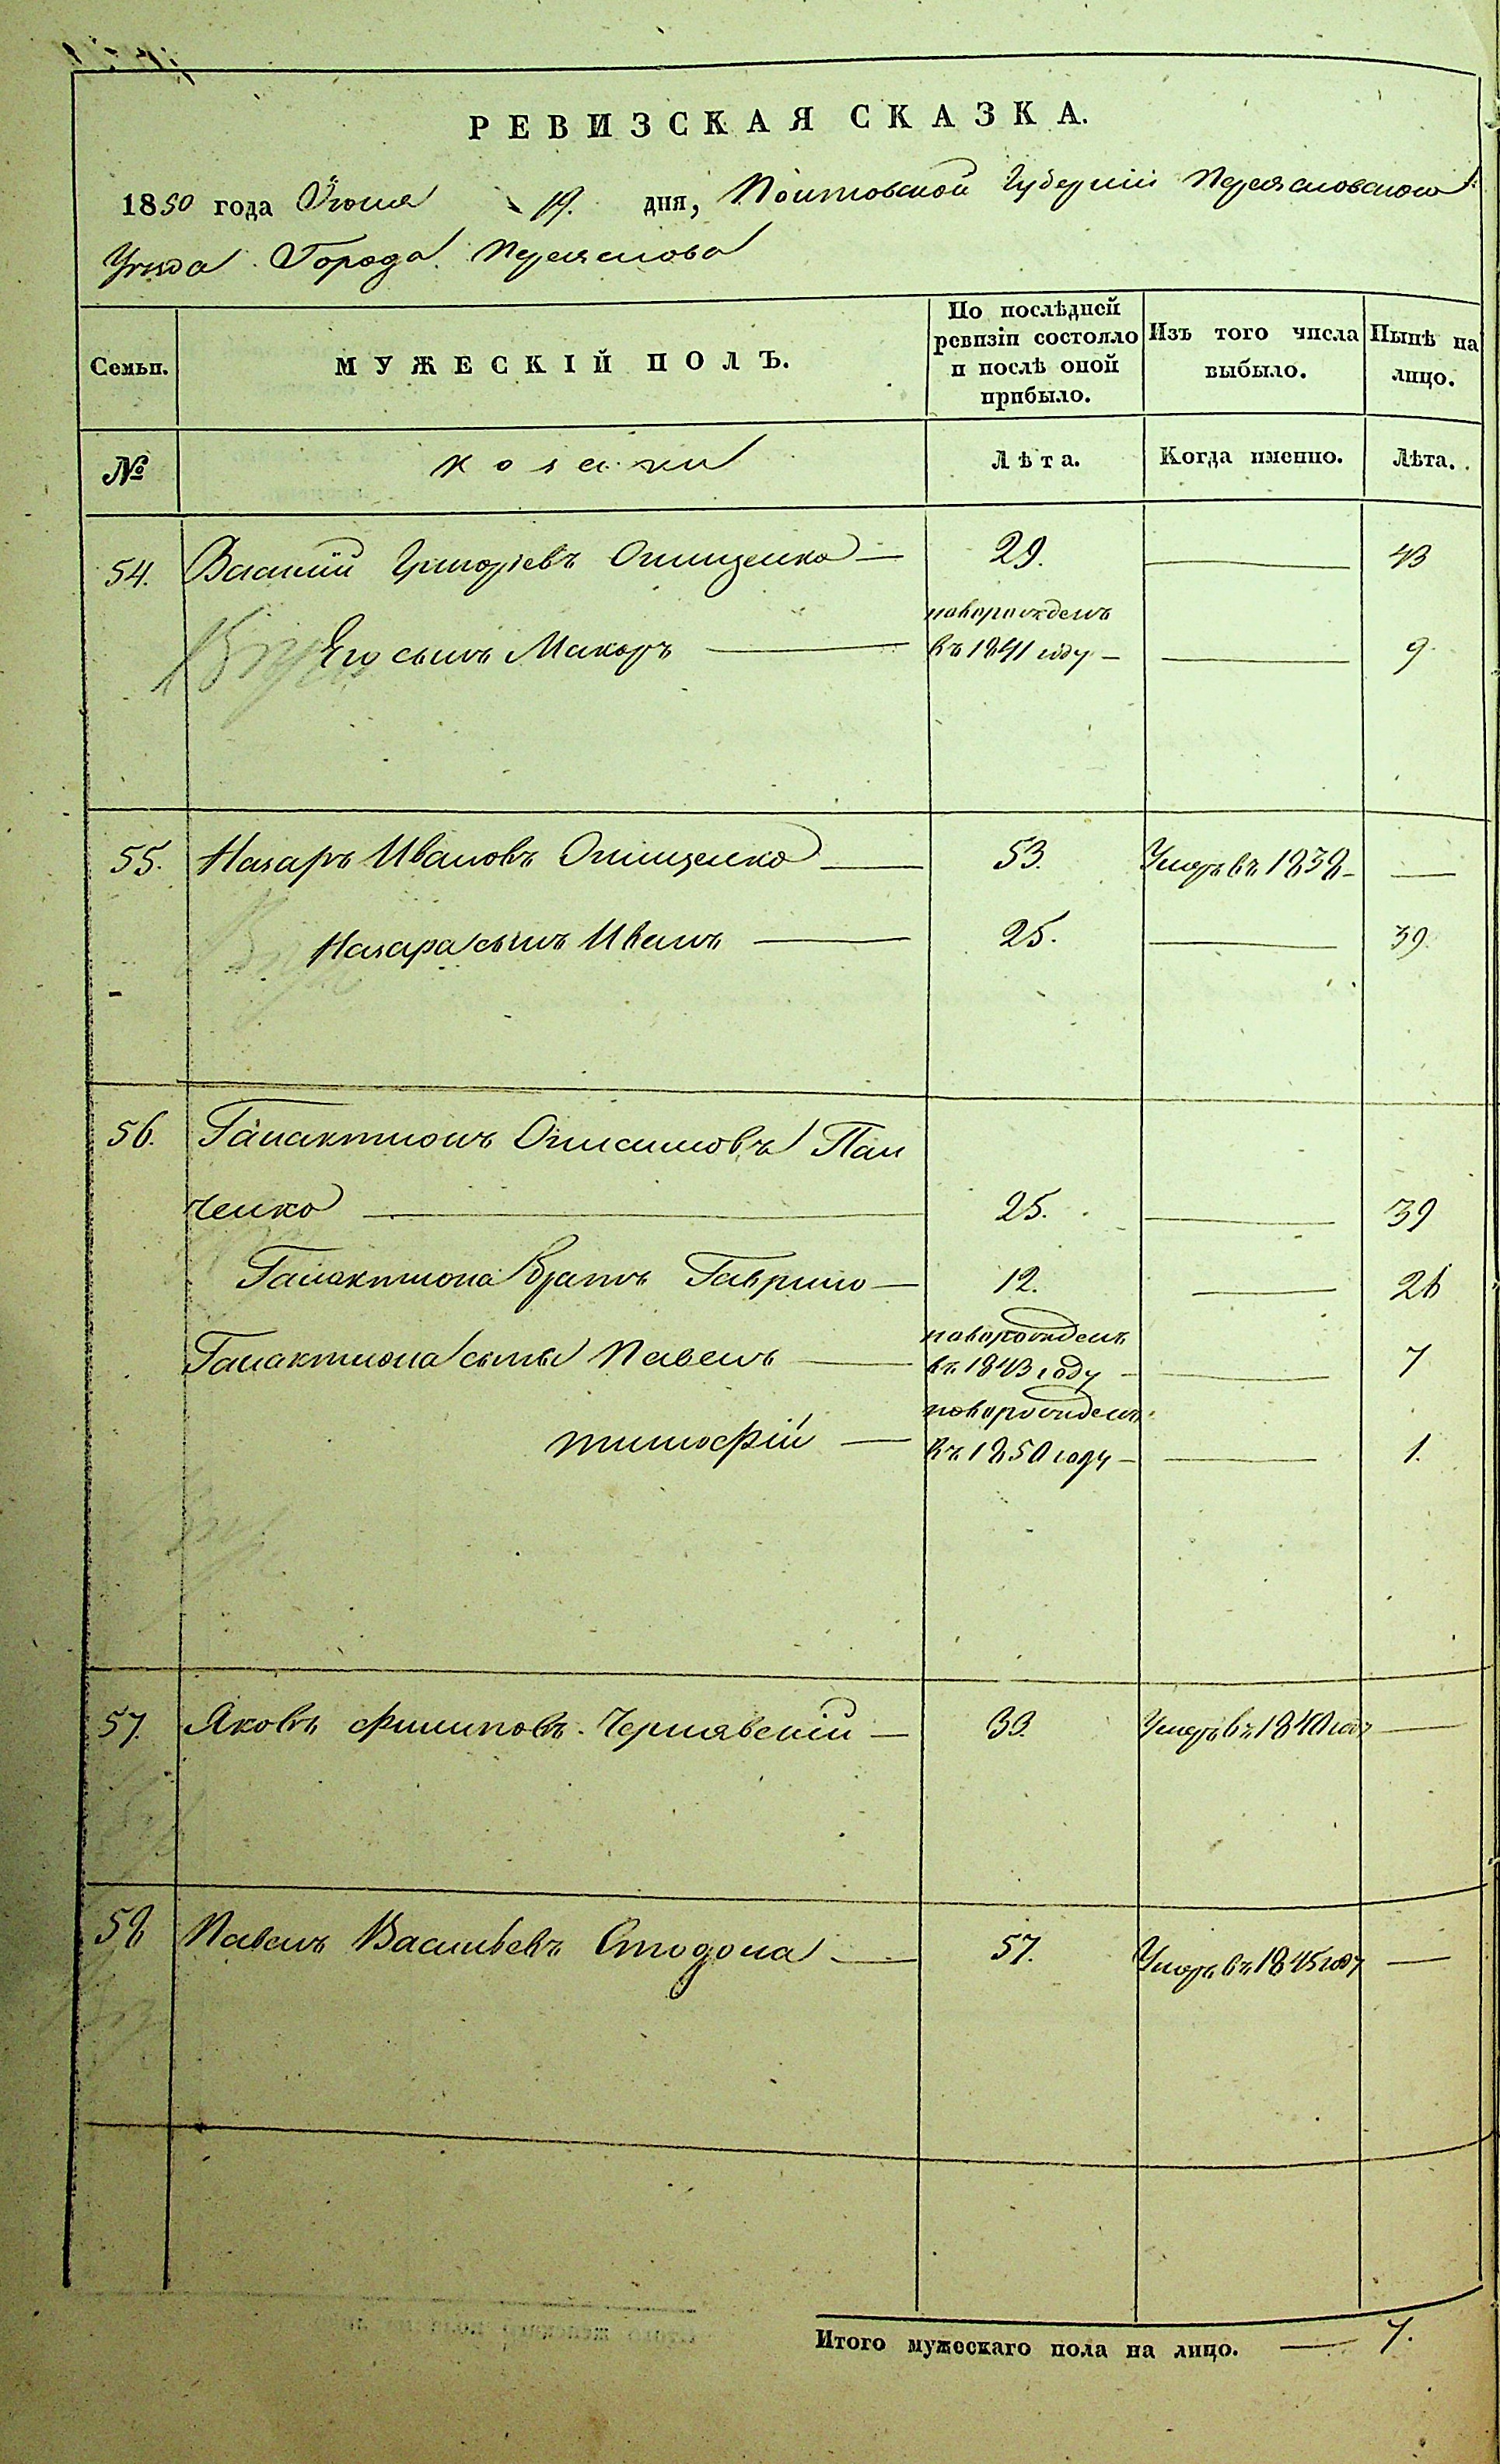 РЕВИЗСКАЯ СКАЗКА.
1850 года Іюня 19. дня, Полтавской Губерніи Переяславскаго
Уезда Города Переяслава
Семьи.
МУЖЕСКІЙ ПОЛЪ.
По послѣдней ревизіи состояло и послѣ оной прибыло.
Изъ того числа выбыло.
Нынѣ на лицо.
№
козаки
Лѣта.
Когда именно.
Лѣта.
54. Василій Григоріевъ Онищенко — 29. — 43
Его сынъ Макаръ — новорожденъ въ 1841 году — — 9.
55. Назаръ Ивановъ Онищенко — 53. Умеръ въ 1838 — —
Назара сынъ Иванъ — 25. — 39.
56. Галактионъ Онисимовъ Пан
ченко — 25. — 39
Галактиона братъ Гаврило — 12. — 26
Галактиона сыны Павелъ — новорожденъ въ 1843 году — — 7
тимофій — новорожденъ въ 1850 году — — 1.
57. Яковъ Филиповъ Чернявскій — 33. Умеръ въ 1840 году —
58 Павелъ Васильевъ Стодола — 57. Умеръ въ 1845 году —
Итого мужескаго пола на лицо. — 7.